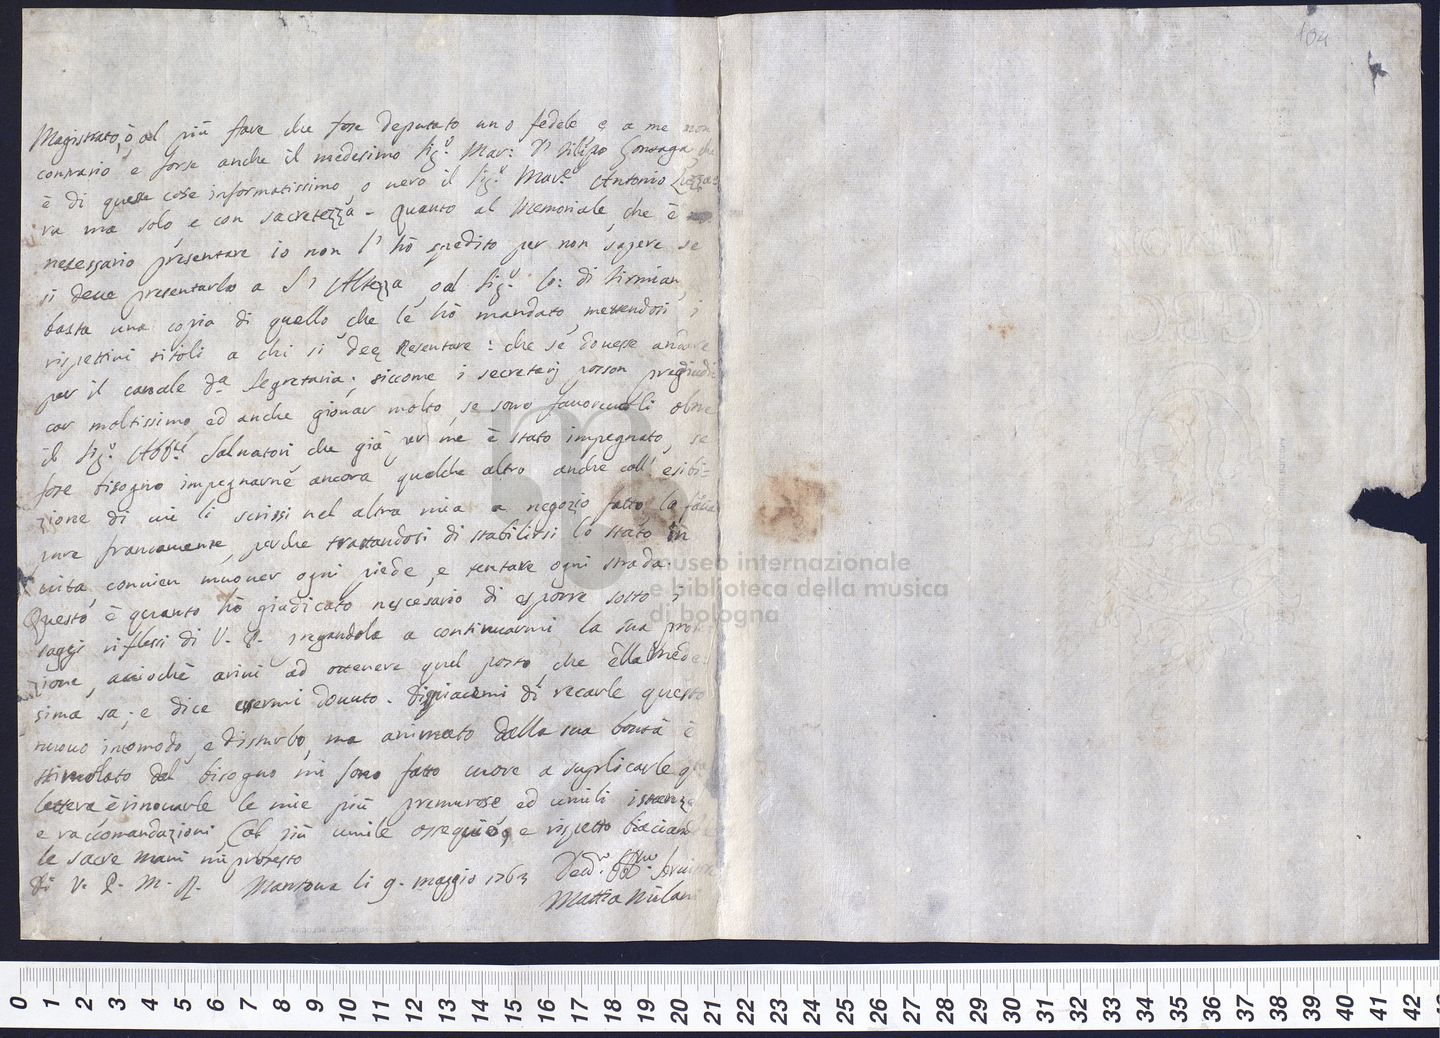 104
Magistrato, ò al più fare che fose deputato uno fedele e a me non
contrario e forse anche il medesimo Sig.r Mar: D. Filipo Gonzaga che
è di queste cose informatissimo, o vero il Sig.r Mar.e Antonio
ra ma solo e con sacretezza. Quanto al Memoriale, che è
nesessario presentare io non l'hò spedito per non sapere se
si deve presentarlo a S. Altezza, o al Sig.r Co: di Firmian,
basta una copia di quello che le hò mandato messendosi i
rispettivi titoli a chi si dee Resentare: che se dovesse andare
per il canale d.a Segretaria; siccome i secretarj posson pregiudi
car moltissimo ed anche giovar molto, se sono favorevoli oltre
il Sig.r Abb.te Salvatori che già per me è stato impegnato, se
fose bisogno impegnarne ancora qualche altro anche coll'esibi-
zione di cui li scrissi nel altra mia a negozio fatto lo facia
pure francamente, perche trattandosi di stabilirsi lo stato in
vita, convien muover ogni piede, e tentare ogni strada.
Questo è quanto hò giudicato nescesario di esporre sotto i
saggi riflessi di V. P. pregandola a continuarmi la sua prote
zione, acciochè arivi ad ottenere quel posto, che ella mede-
sima sa, e dice essermi dovuto. Dispiacemi di recarle questo
nuovo incomodo, e disturbo, ma animato dalla sua bontà e
stimolato dal bisogno mi sono fatto cuore a suplicarle q.ta
lettera è rinovarle le mie più premurose ed umili istanze
e raccomandazioni. Col più umile ossequio, e rispetto baciando
le sacre mani mi protesto
Di V. P. M. R. Mantova li 9. maggio 1763
Mattia Milani
museo internazionale
e biblioteca della musica
di bologna
0 1 2 3 4 5 6 7 8 9 10 11 12 13 14 15 16 17 18 19 20 21 22 23 24 25 26 27 28 29 30 31 32 33 34 35 36 37 38 39 40 41 42